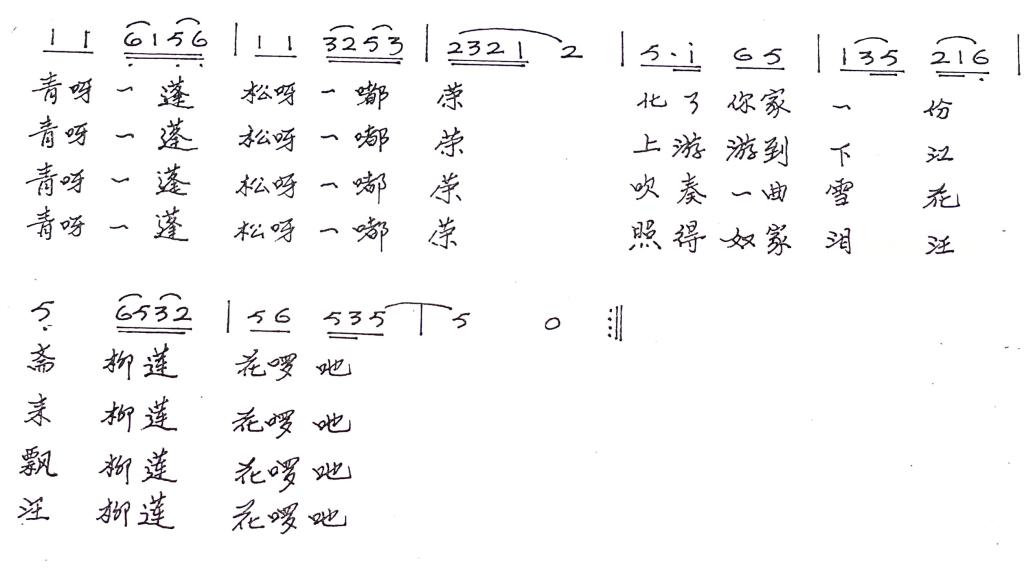 1 1 6156 | 1 1 3253 | 2321 2 | 5·i 65 | 135 216 |
青呀 一 蓬 松呀 一 嘟 荣 化了 你家 一 份
青呀 一 蓬 松呀 一 嘟 荣 上游 游到 下 江
青呀 一 蓬 松呀 一 嘟 荣 吹奏 一曲 雪 花
青呀 一 蓬 松呀 一 嘟 荣 照得 奴家 泪 汪
5 6532 | 56 535 | 5 0 :||
斋 柳莲 花啰 吔
来 柳莲 花啰 吔
飘 柳莲 花啰 吔
汪 柳莲 花啰 吔